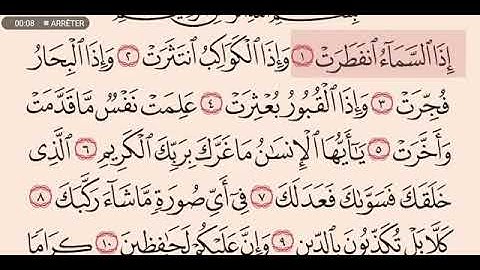 00:08 ■ ARRÊTER
إِذَا ٱلسَّمَآءُ ٱنفَطَرَتْ ١ وَإِذَا ٱلْكَوَاكِبُ ٱنتَثَرَتْ ٢ وَإِذَا ٱلْبِحَارُ
فُجِّرَتْ ٣ وَإِذَا ٱلْقُبُورُ بُعْثِرَتْ ٤ عَلِمَتْ نَفْسٌ مَّا قَدَّمَتْ
وَأَخَّرَتْ ٥ يَٰٓأَيُّهَا ٱلْإِنسَٰنُ مَا غَرَّكَ بِرَبِّكَ ٱلْكَرِيمِ ٦ ٱلَّذِى
خَلَقَكَ فَسَوَّىٰكَ فَعَدَلَكَ ٧ فِىٓ أَىِّ صُورَةٍ مَّا شَآءَ رَكَّبَكَ ٨
كَلَّا بَلْ تُكَذِّبُونَ بِٱلدِّينِ ٩ وَإِنَّ عَلَيْكُمْ لَحَٰفِظِينَ ١٠ كِرَامًا